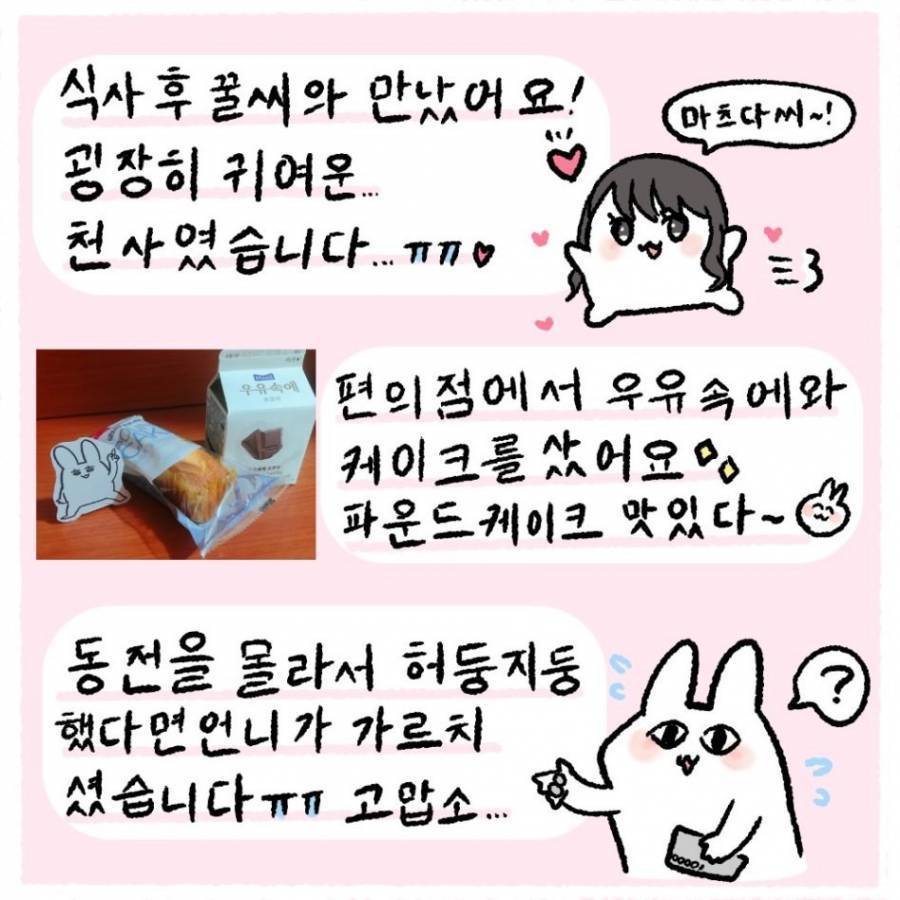 식사 후 꿀씨와 만났어요!
굉장히 귀여운...
천사였습니다...ㅠㅠ
마츠다씨~!
우유속에
편의점에서 우유속에와
케이크를 샀어요
파운드케이크 맛있다~
동전을 몰라서 허둥지둥
했다면언니가 가르치
셨습니다ㅠㅠ 고맙소...
?